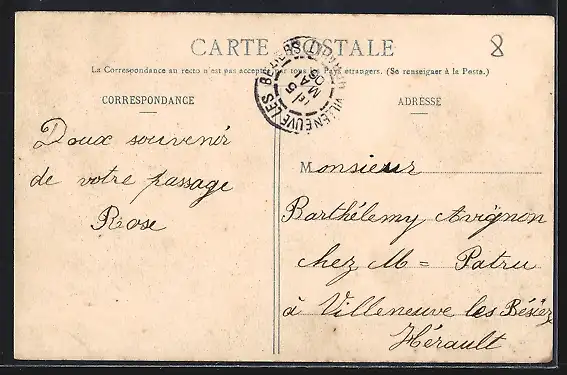 CARTE POSTALE
8
La Correspondance au recto n'est pas acceptée par tous les Pays étrangers. (Se renseigner à la Poste.)
CORRESPONDANCE
Doux souvenir
de votre passage
Rose
ADRESSE
Monsieur
Barthélemy Avignon
chez M = Patru
à Villeneuve les Bésiers
Hérault
VILLENEUVE LES BEZIERS
15
MAI